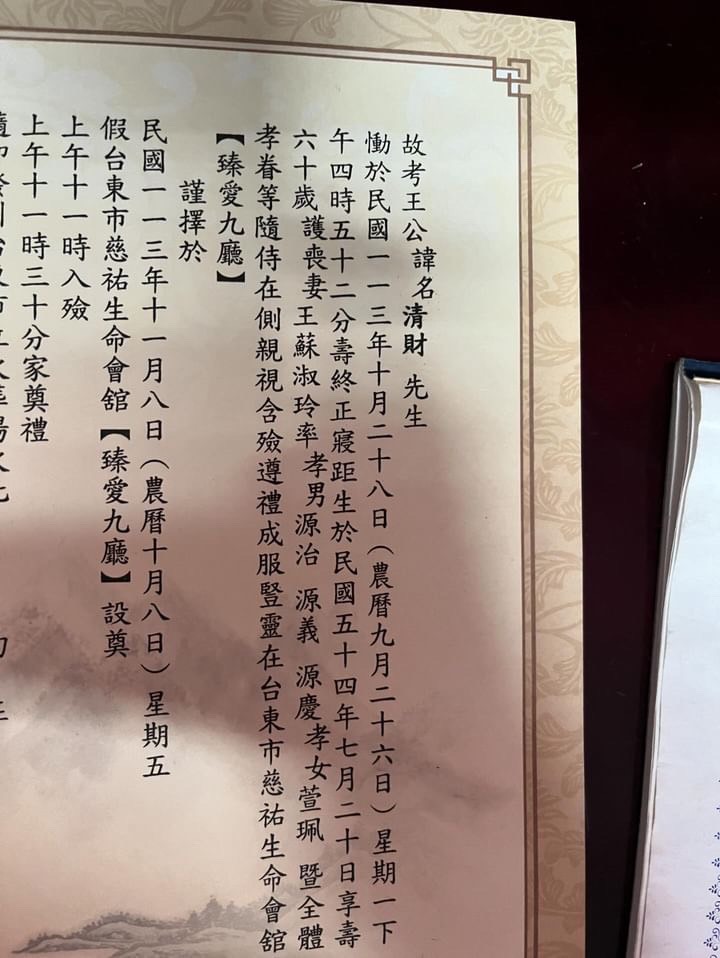 故考王公諱名清財 先生
慟於民國一一三年十月二十八日（農曆九月二十六日）星期一下
午四時五十二分壽終正寢距生於民國五十四年七月二十日享壽
六十歲 護喪妻 王蘇淑玲率 孝男 源治 源義 源慶 孝女 萱珮 暨全體
孝眷等隨侍在側親視含殮遵禮成服豎靈在台東市慈祐生命會館
【臻愛九廳】
謹擇於
民國一一三年十一月八日（農曆十月八日）星期五
假台東市慈祐生命會館【臻愛九廳】設奠
上午十一時入殮
上午十一時三十分家奠禮